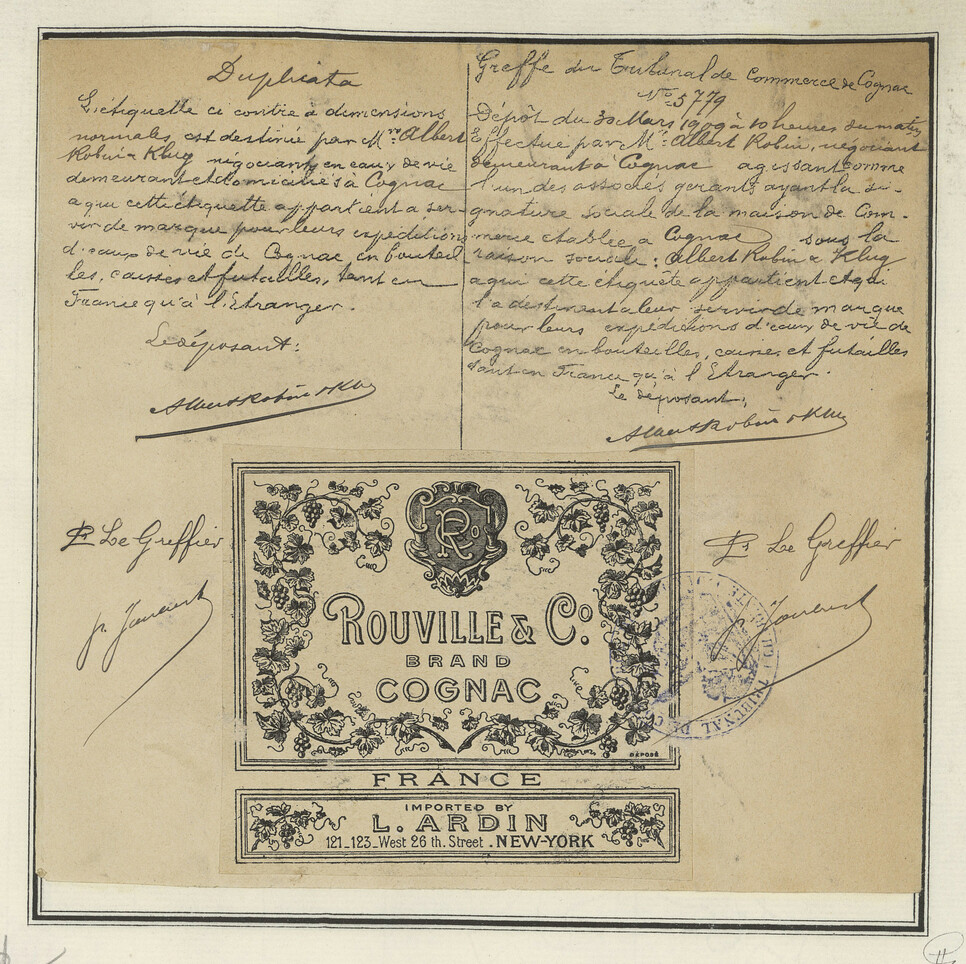 Duplicata
L'étiquette ci contre à dimensions
normales est destinée par Mrs Albert
Robin & Klug négociants en eaux de vie
demeurant et domiciliés à Cognac
a qui cette étiquette appartient a ser-
vir de marque pour leurs expéditions
d'eaux de vie de Cognac en bouteil
les, caisses et futailles, tant en
France qu'à l'Etranger.
Le déposant:
Albert Robin & Klug
Greffe du Tribunal de Commerce de Cognac
No 5779
Dépôt du 30 Mars 1909 à 10 heures du matin
Effectué par Mr Albert Robin, négociant
demeurant à Cognac agissant comme
l'un des associés gérants ayant la si-
gnature sociale de la maison de Com-
merce établie a Cognac sous la
raison sociale: Albert Robin & Klug
a qui cette étiquète appartient et qui
l'a destinent a leur servir de marque
pour leurs expéditions d'eaux de vie de
Cognac en bouteilles, caisses et futailles
tant en France qu'à l'Etranger.
Le déposant,
Albert Robin & Klug
Le Greffier
Le Greffier
RCo
ROUVILLE & Co
BRAND
COGNAC
DÉPOSÉ
FRANCE
IMPORTED BY
L. ARDIN
121_123_West 26 th. Street . NEW-YORK
TRIBUNAL DE